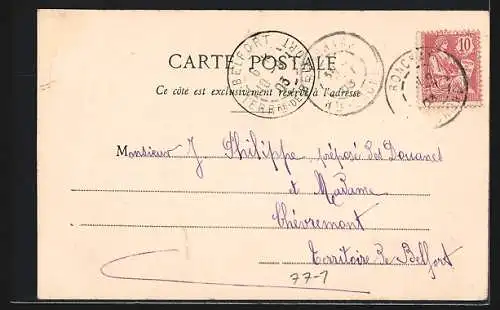 CARTE POSTALE
Ce côté est exclusivement réservé à l'adresse
BELFORT
03
RONC
10
Monsieur J Philippe, préposé des Douanes
et Madame
Chèvremont
Territoire de Belfort
77-1